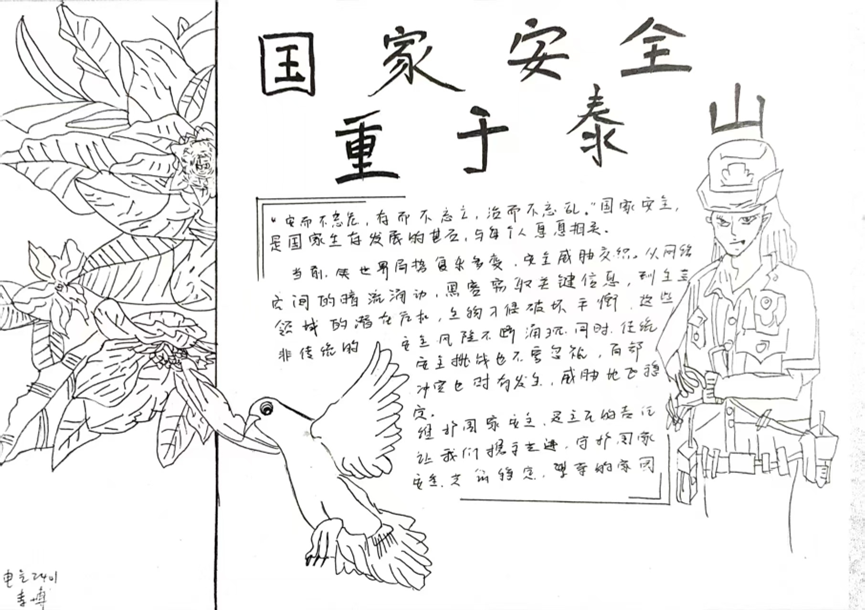 国家安全
重于泰山
"安而不忘危,存而不忘亡,治而不忘乱。"国家安全,
是国家生存发展的基石,与每个人息息相关。
当前,世界局势复杂多变,安全威胁交织。从网络
空间的暗流涌动,黑客窃取关键信息,到生态
领域的潜在危机,生物入侵破坏平衡,这些
非传统的安全风险不断涌现。同时,传统
安全挑战也不容忽视,局部
冲突也时有发生,威胁地区稳
定。
维护国家安全,是全民的责任
让我们携手共进,守护国家
安全,
电主2401